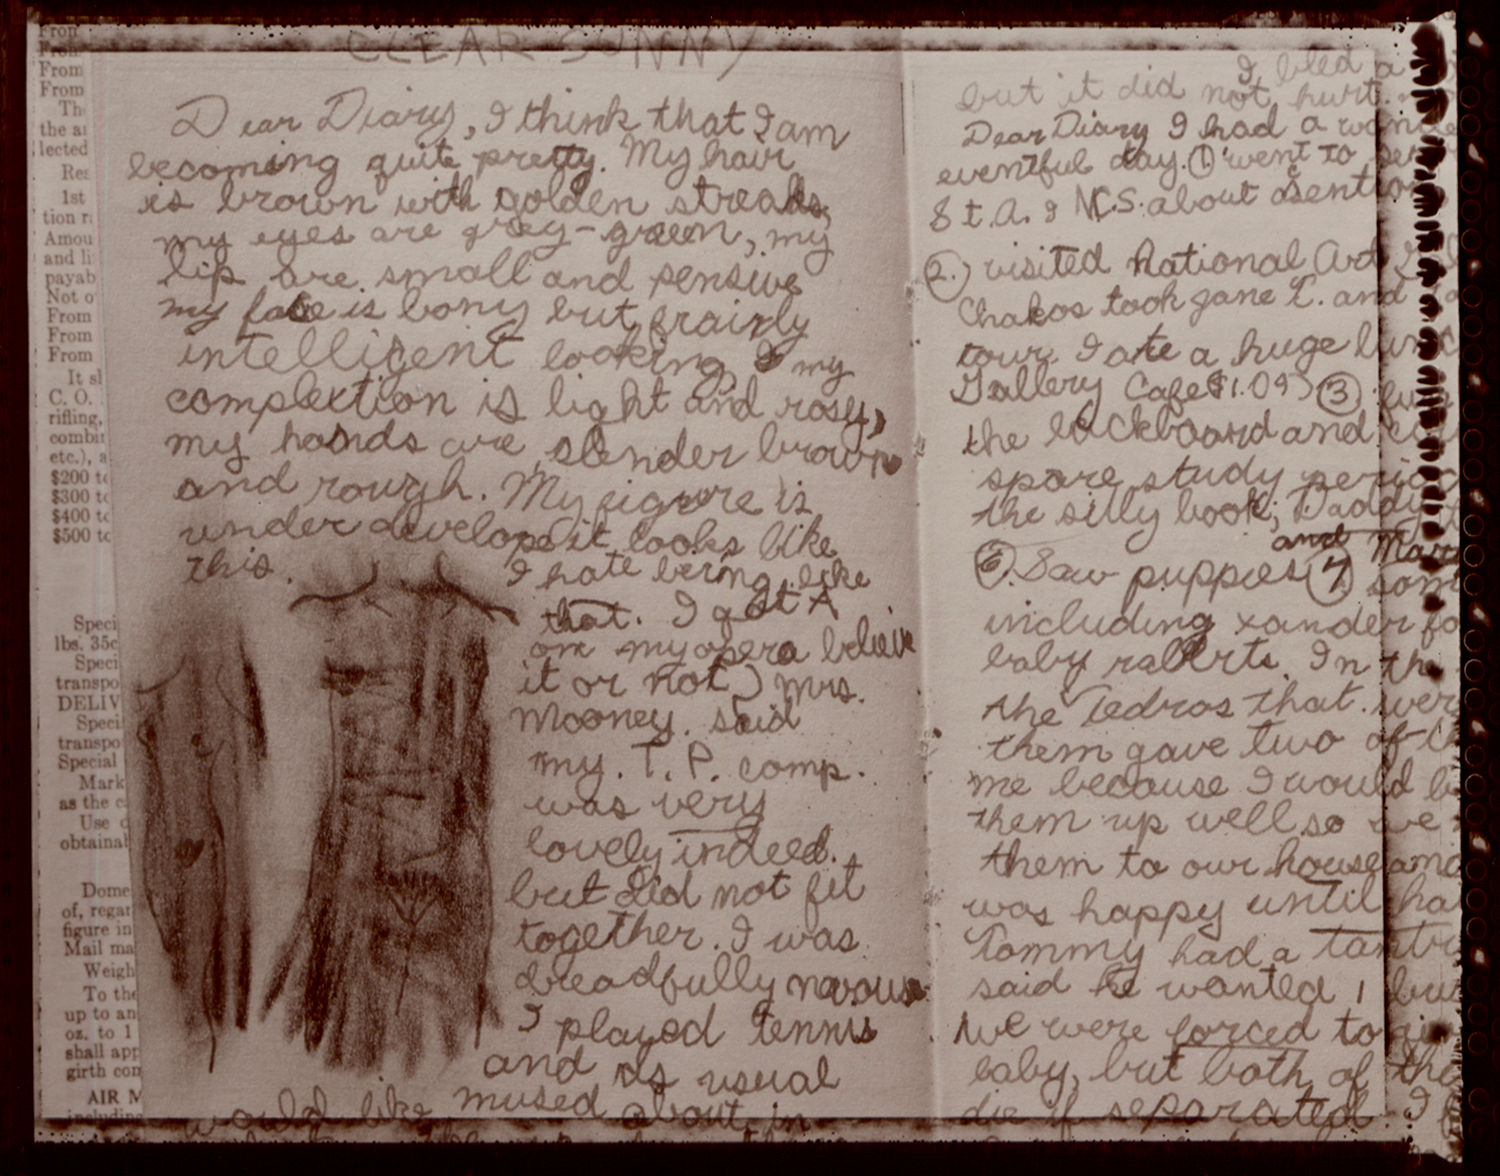 CLEAR SUNNY
Dear Diary, I think that I am
becoming quite pretty. My hair
is brown with golden streaks,
my eyes are grey-green, my
lip are small and sensive
my face is bony but frairly
intelligent looking, my
complextion is light and rosy,
my hands are slender brown
and rough. My figure is
under develope it looks like
this.
I hate being like
that. I got A
on my opera believe
it or not) Mrs.
Mooney. said
my. T. P. comp.
was very
lovely indeed.
but did not fit
together. I was
dreadfully nervous
I played tennis
and as usual
mused about in
would like
I bled a
but it did not hurt..
Dear Diary I had a
eventful day. ① went to
St. A. & N.C.S. about
②.) visited National Art
Chakos took Jane L. and
tour. I ate a huge
Gallery Cafe $1.09) ③
the blackboard and
spare study
the silly book, Daddy
and
⑥. Saw puppies ⑦
including xander
baby rabbits. In the
the Tedros that.
them gave two of
me because I would
them up well so we
them to our house and
was happy until
Tommy had a
said he wanted 1 but
We were forced to
baby, but both of the
die if separated. I
From
From
From
From
the
lected
1st
and
payab
Not
From
From
From
It
C. O.
rifling,
etc.), a
$200
$300
$400
$500
Speci
lbs. 35c
Speci
transpo
DELIV
Speci
transpo
Special
Mark
as the
Use
obtainal
Dome
of, regar
figure in
Mail ma
Weigh
To the
up to an
oz. to 1
shall app
girth con
AIR M
including